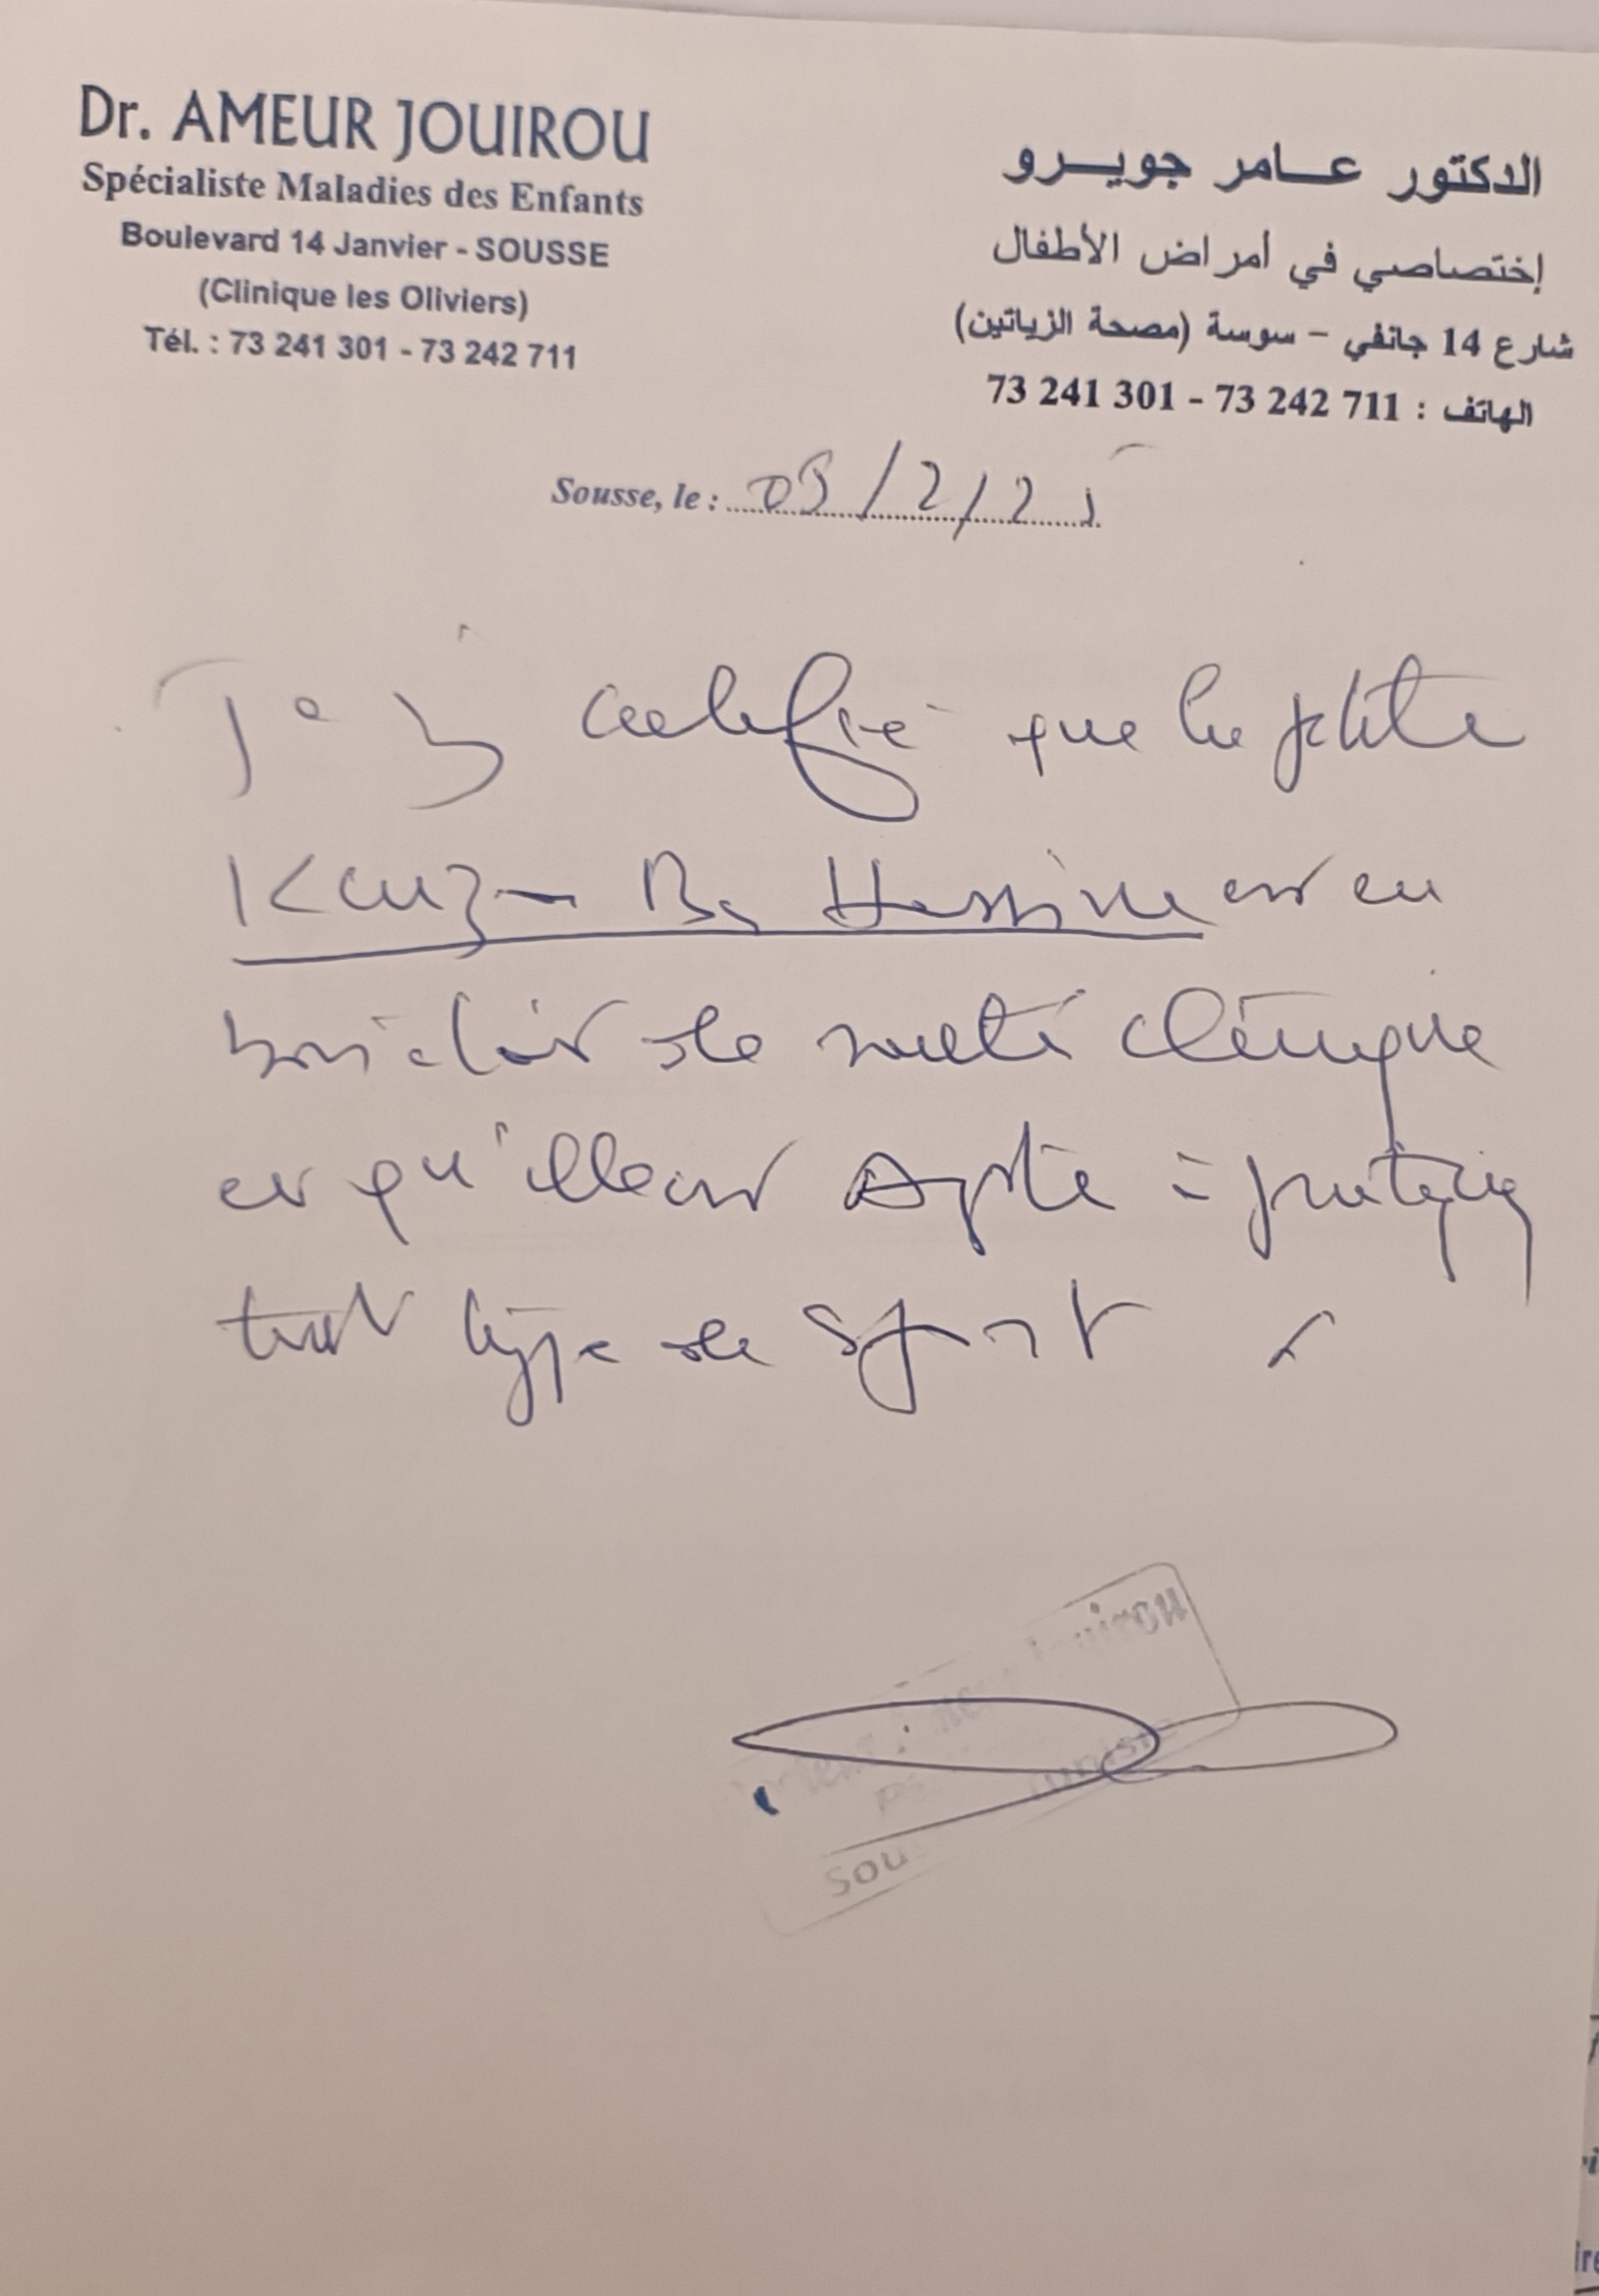 Dr. AMEUR JOUIROU
Spécialiste Maladies des Enfants
Boulevard 14 Janvier - SOUSSE
(Clinique les Oliviers)
Tél. : 73 241 301 - 73 242 711
الدكتور عامر جويرو
إختصاصي في أمراض الأطفال
شارع 14 جانفي - سوسة (مصحة الزياتين)
الهاتف : 73 241 301 - 73 242 711
Sousse, le : /2/2
certifie que la petite
Hassine est en
bon état de santé clinique
et qu'elle est Apte à pratiquer
tout type de sport
Jouirou
Tunisie